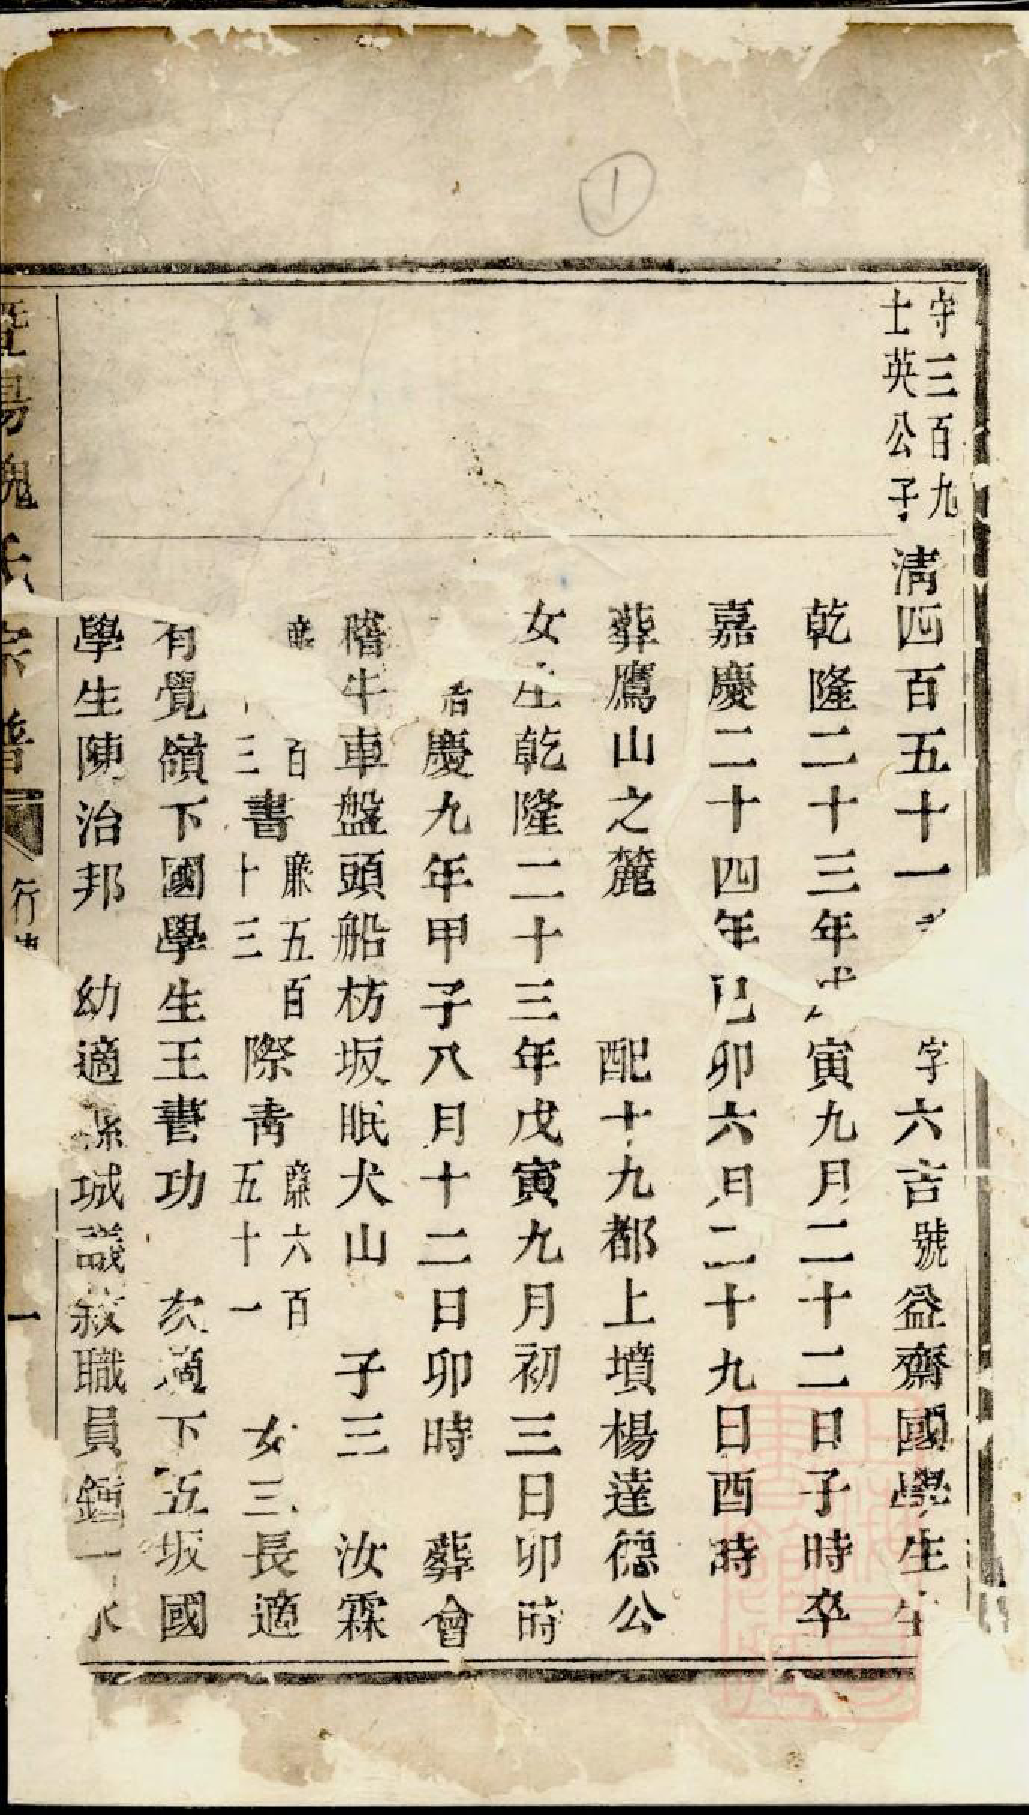 ①
守三百九
士英公子
清四百五十一 字六吉號益齋國學生生
乾隆二十三年戊寅九月二十二日子時卒
嘉慶二十四年己卯六月二十九日酉時
葬鷹山之麓 配十九都上墳楊達德公
女生乾隆二十三年戊寅九月初三日卯時
慶九年甲子八月十二日卯時 葬會
稽牛車盤頭船枋坂眠犬山 子三 汝霖
廉 百三 書 廉五百十三 際青 廉六百五十一 女三長適
有覺嶺下國學生王書功 次適下五坂國
學生陳治邦 幼適 城議敘職員鍾一
暨陽魏氏宗譜 行 一